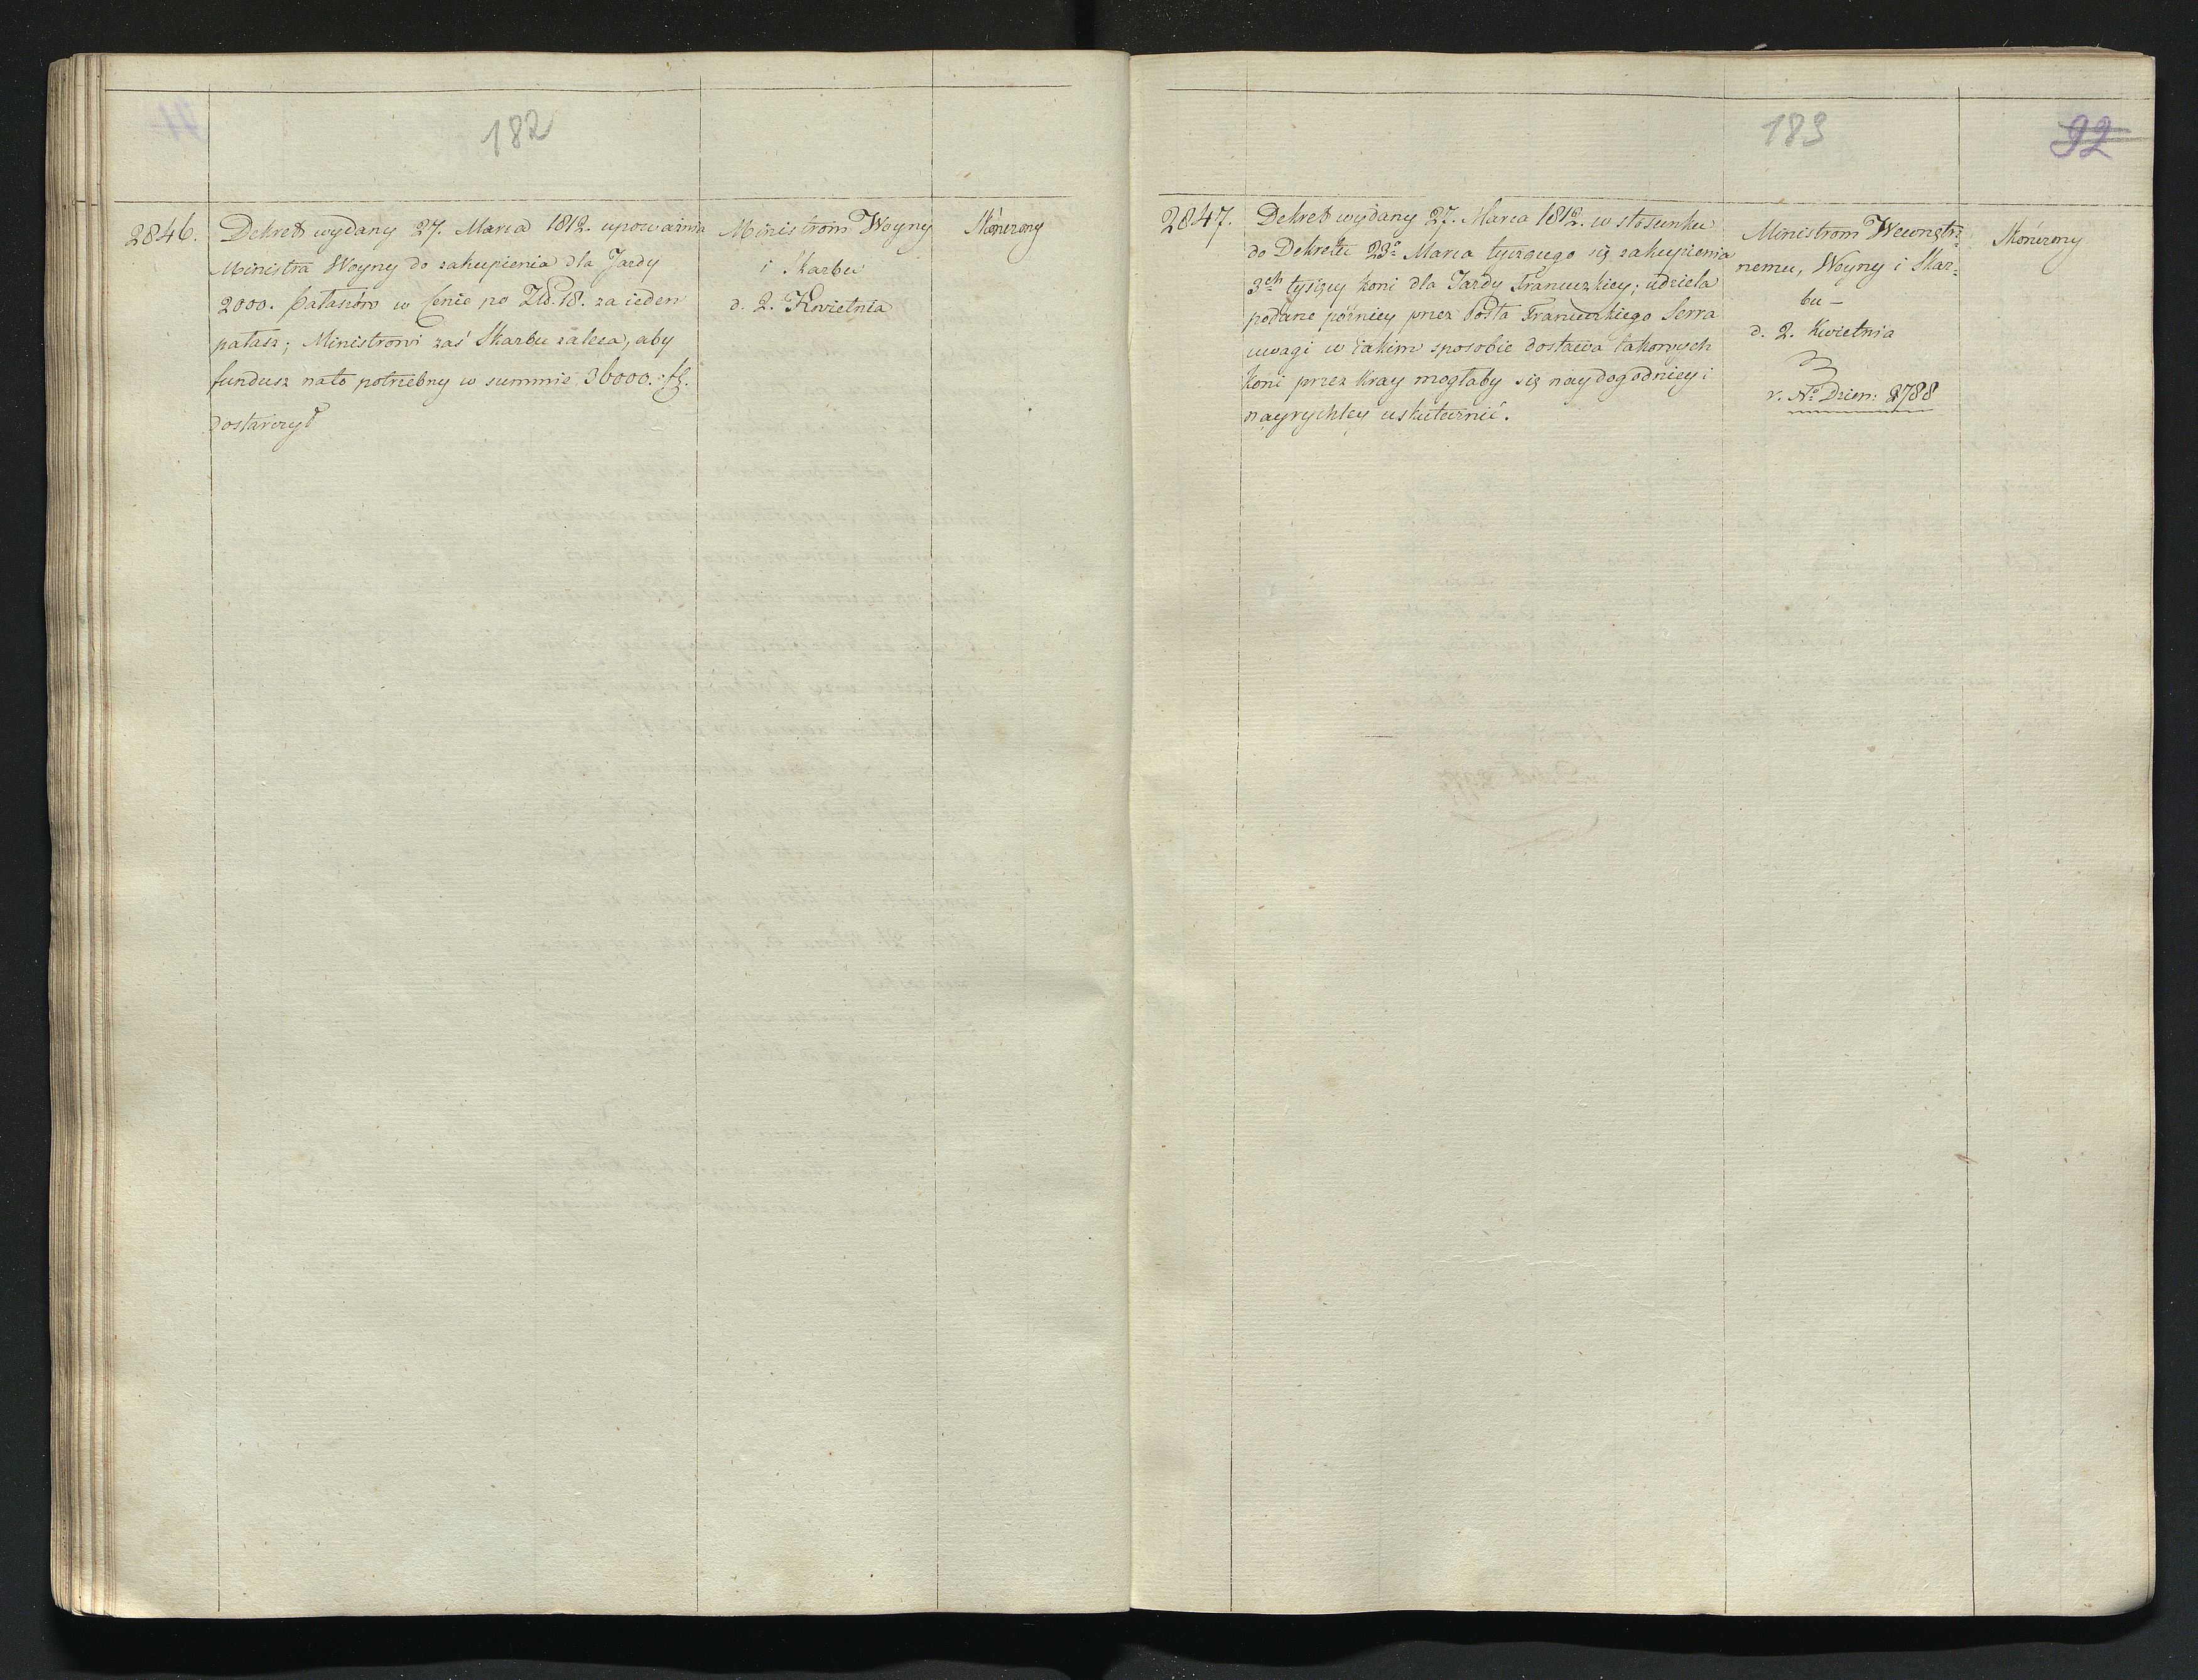 182
2846.
Dekret wydany 27. Marca 1812. upoważnia
Ministra Woyny do zakupienia dla Jazdy
2000. Pałaszów w Cenie po Zł. 18. za ieden
pałasz; Ministrowi zaś Skarbu zaleca, aby
fundusz nato potrzebny w summie 36000. fl.
dostarczył
Ministrom Woyny
i Skarbu
d. 2. Kwietnia
Skończony
183
92
2847.
Dekret wydany 27. Marca 1812. w stosunku
do Dekretu 23º Marca tyczącego się zakupienia
3ch tysięcy koni dla Jazdy Francuzkiey; udziela
podane późniey przez Posła Francuzkiego Serra
uwagi w iakim sposobie dostawa takowych
koni przez Kray mogłaby się naydogodniey i
nayrychley uskutecznić.
Ministrom Wewnętrz:
nemu, Woyny i Skar:
bu –
d. 2. Kwietnia
v. Nº Dzien: 2788
Skończony